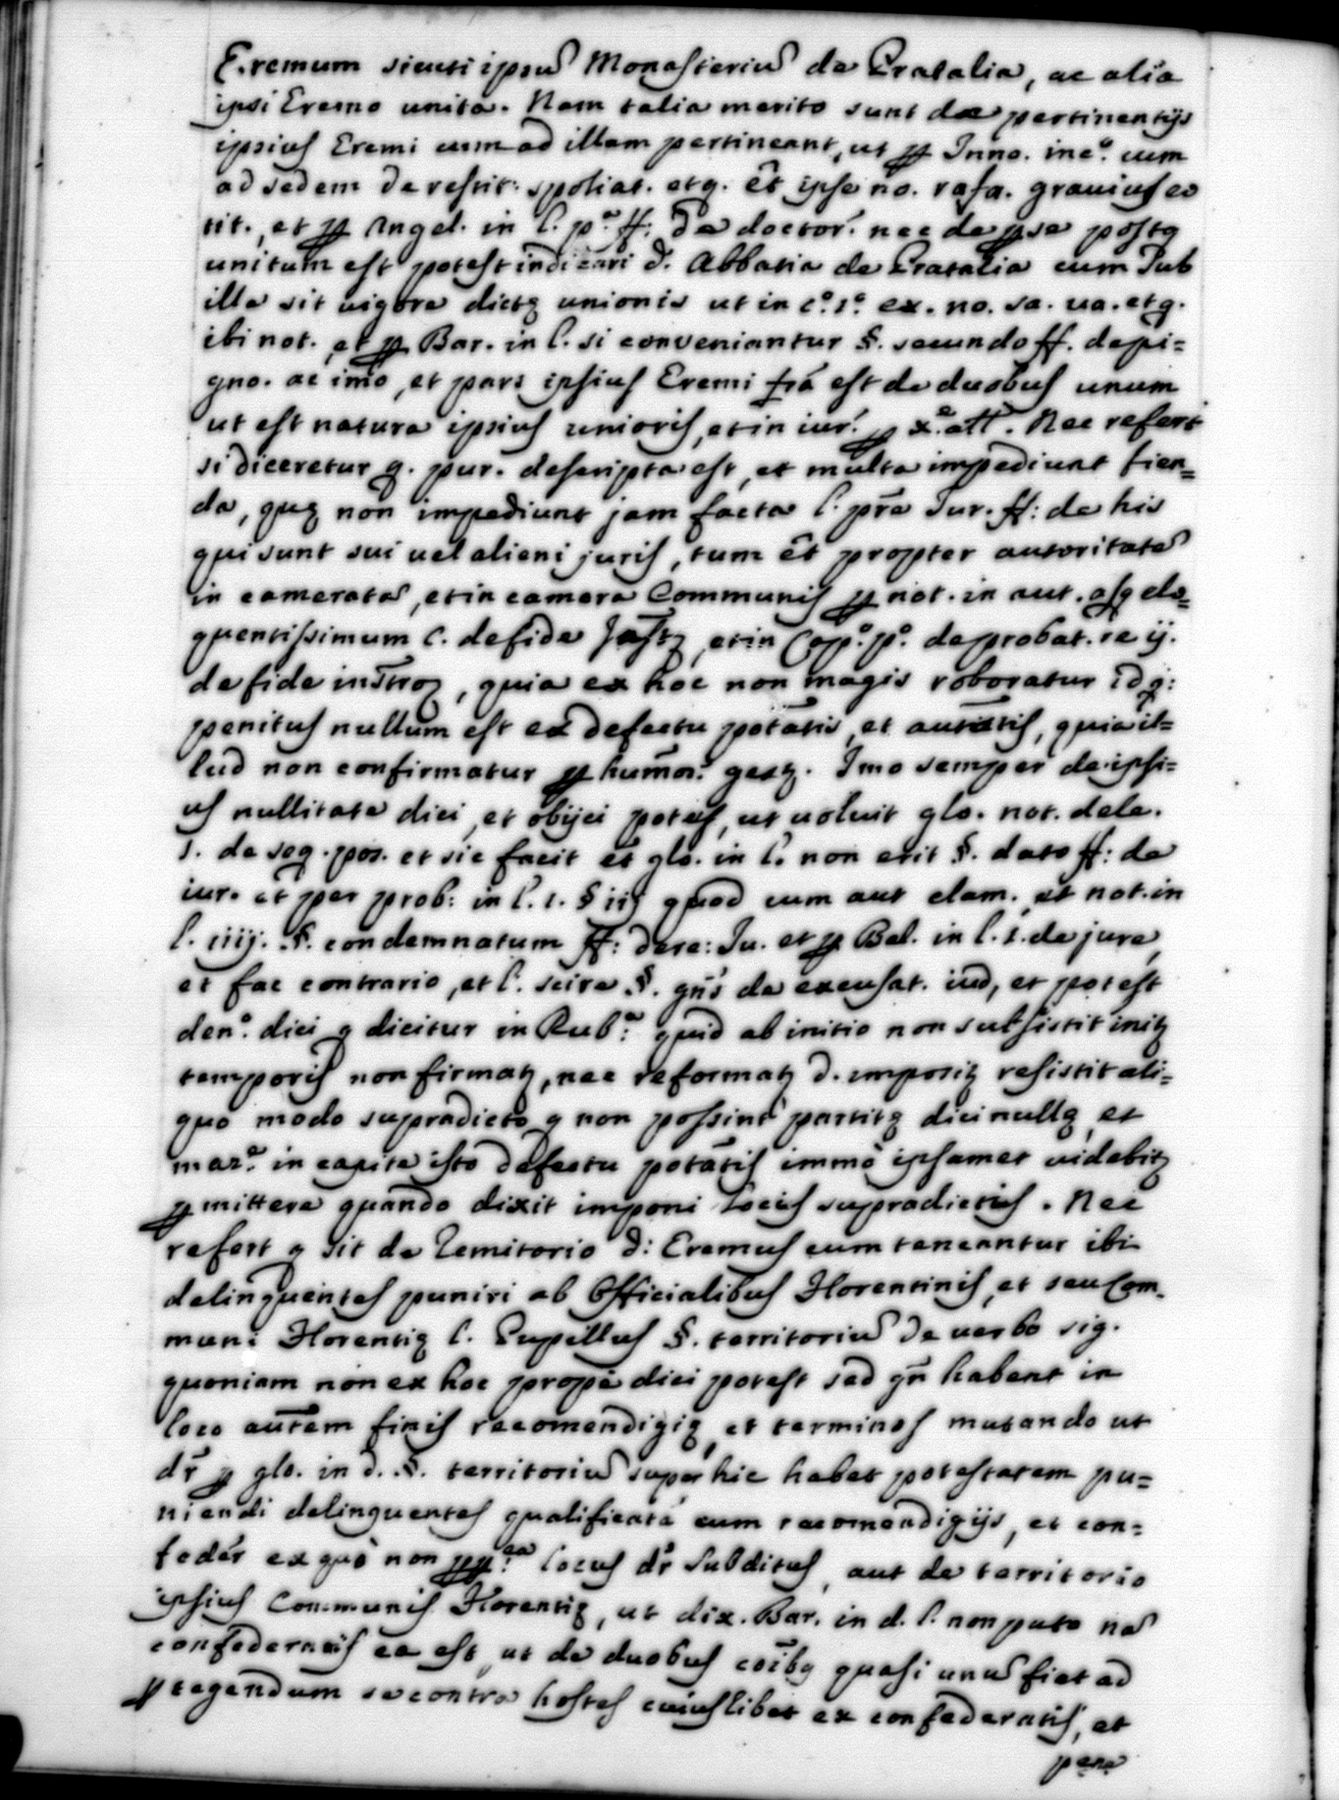 Eremum sicuti ipsū Monasteriū de Pratalia, ac alia
ipsi Eremo unita. Nam talia merito sunt de pertinentijs
ipsius Eremi cum ad illam pertineant, ut ꝑ Inno. in cº. cum
ad sedem de restit: spoliat. etq. et̄ ipse no. rafa. grauius eo
tit., et ꝑ Angel. in l. pª. ff: de doctor. nec de ꝑse postq
unitum est potest indicari d. Abbatia de Pratalia cum sub
illa sit uigore dictę unionis ut in cº. 1º. ex. no. sa. ua. etq.
ibi not., et ꝑ Bar. in l. si conveniantur §. secundo ff. de pi=
gno. ac imo, et pars ipsius Eremi est de duobus unum
ut est natura ipsius unioris, et in iur. Nec refert
si diceretur q. pur. descripta est, et multa impediunt fien=
da, quę non impediunt jam facta l. pr̄a Jur. ff: de his
qui sunt sui uel alieni juris, tum et̄ propter autoritatē
in cameratā, et in camera Communis ꝑ not. in aut. elo=
quentissimum C. de fide et in Capº. pº. de probat. re ij.
de fide instroꝫ, quia ex hoc non magis roboratur id q:
penitus nullum est ex defectu potātis, et autātis, quia il=
lud non confirmatur ꝑ humōi. gesꝫ. Imo semper de ipsi=
us nullitate dici, et obijci potest, ut uoluit glo. not. de le.
1. de seq. pos. et sic facit et̄ glo. in l. non erit §. dato ff: de
iur. et per prob: in l. 1. § iij quod cum aut clam., et not. in
l. iiij. §. condemnatum ff: de re: Iu. et ꝑ Bal. in l. 1. de jure,
et fac contrario, et l. scire §. de excusat. iud, et potest
denº. dici q dicitur in Rubª. quid ab initio non subsistit initꝫ
temporis non firmatꝫ, nec reformatꝫ d. impositꝫ resistit ali=
quo modo supradicto q non possint partitę dici nullę, et
maxª. in capite isto defectu potātis immò ipsamet uidebitꝫ
ꝑmittere quando dixit imponi locis supradictis. Nec
refert q sit de Territorio d: Eremus cum teneantur ibi
delinquentes puniri ab Officialibus Florentinis, et seu Com=
muni Florentię l. Pupillus §. territoriū de uerbo sig.
quoniam non ex hoc propē dici potest sed qn̄ habent in
loco autem finis recomendigię, et terminos mutando ut
dr̄ ꝑ glo. in d. §. territoriū super hic habet potestatem pu=
niendi delinquentes qualificatā cum recomendigijs, et con=
feder ex quo non locus dr̄ subditus, aut de territorio
ipsius Communis Florentię, ut dix. Bar. in d. l. non puto nā
confedernis ea est, ut de duobus coībꝫ quasi unū fiet ad
ꝑtegendum se contra hostes cuiuslibet ex confederatis, et
pena